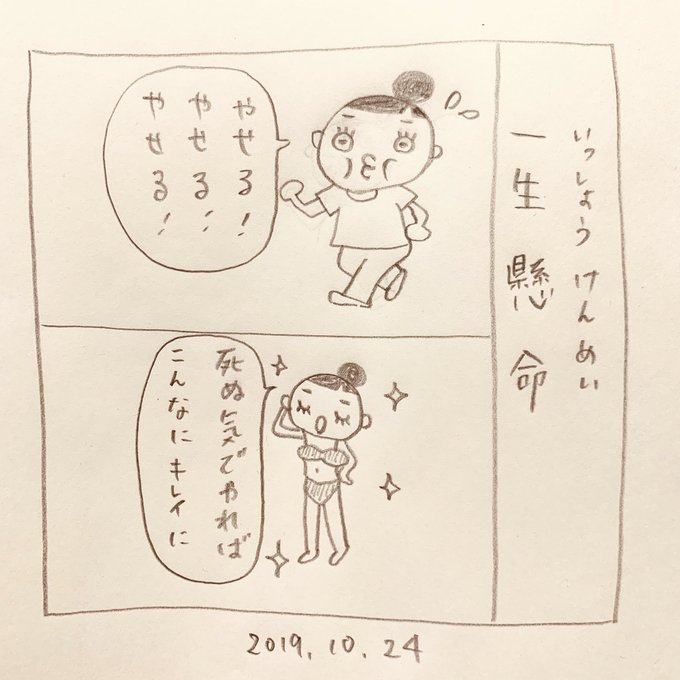 いっしょうけんめい
一生懸命
やせる!
やせる!
やせる!
死ぬ気でやれば
こんなにキレイに
2019.10.24